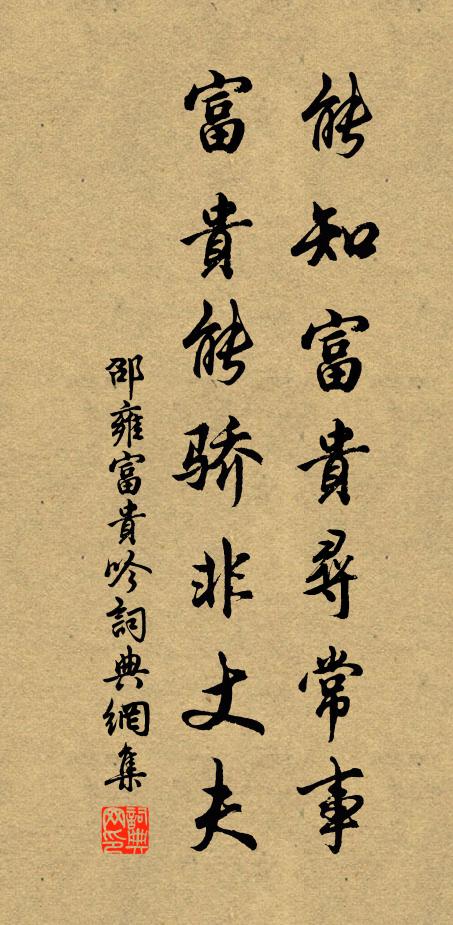 能知富貴尋常事
富貴能骄非丈夫
邵雍富貴吟詞典網集
詞典网印